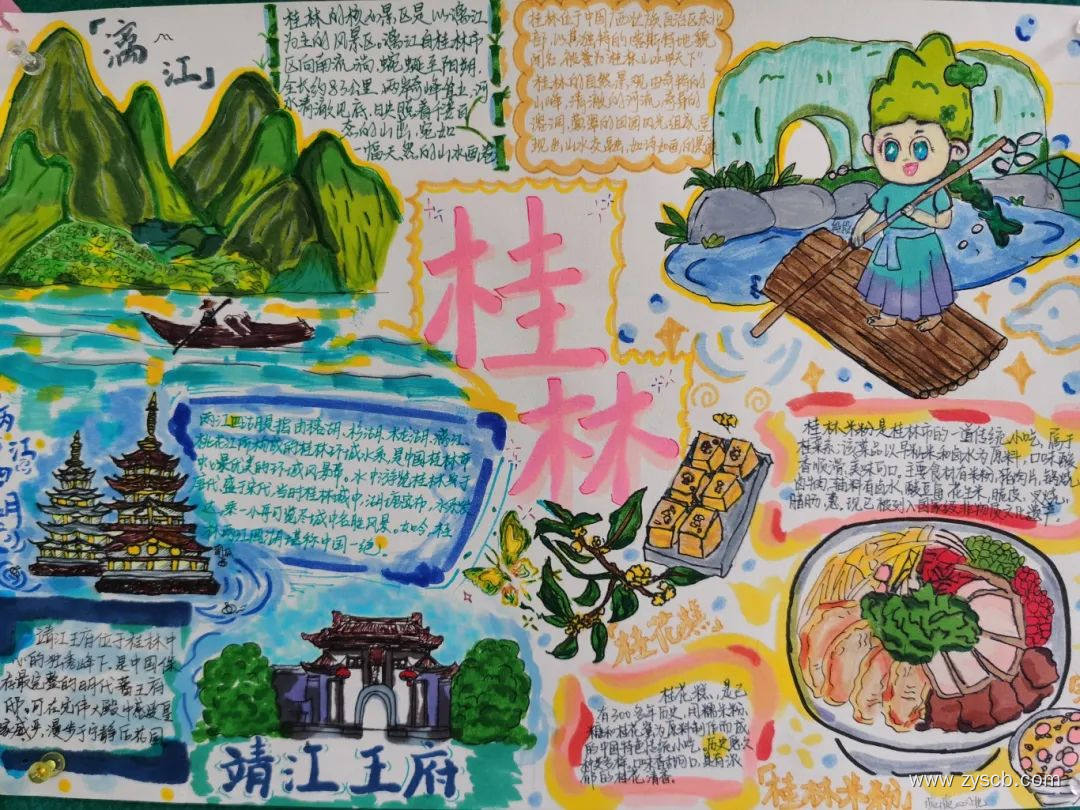 「漓江」
桂林的核心景区是以漓江
为主的风景区。漓江自桂林市
区向南流淌,蜿蜒至阳朔,
全长约83公里,两岸奇峰耸立,河
水清澈见底,日央照着千姿百
态的山峦,宛如
一幅天然的山水画卷
桂林位于中国广西壮族自治区东北
部,以其独特的喀斯特地貌
闻名,被誉为"桂林山水甲天下"。
桂林的自然景观由奇特的
山峰,清澈的河流、奇异的
溶洞,
现出山水交融,如诗如画的美
桂林
两江四湖
两江四湖是指由榕湖、杉湖、木龙湖、漓江、
桃花江所构成的桂林环城水系,是中国桂林市
中心最优美的环城风景带。水中游览桂林
代,盛于宋代,当时桂林城中湖
达,乘一小舟可览尽城中名胜风景。如今,桂
林两江四湖堪称中国一绝。
桂林米粉是桂林市的一道传统小吃,属于
桂菜系,该菜品以早籼米和卤水为原料,口味酸
香顺滑,美味可口,主要食材有米粉,猪肉片,锅烧,
卤肉,辅料有卤水,酸豆角,花生米,脆皮,叉烧,
腊肠,葱,现已被列入国家级非物质文化遗产。
靖江王府位于桂林中
心的独秀峰下,是中国保
存最完整的明代藩王府
邸,可在宏伟大殿中感受皇
家威严,漫步于宁静庄花园
靖江王府
「桂花糕」
桂花糕,是已
有300多年历史,用糯米粉、
糖和桂花蜜为原料制作而成
的中国特色传统小吃。历史悠久
种类多样,口味香甜可口,具有浓
郁的桂花清香。
「桂林米粉」
www.zyscb.com